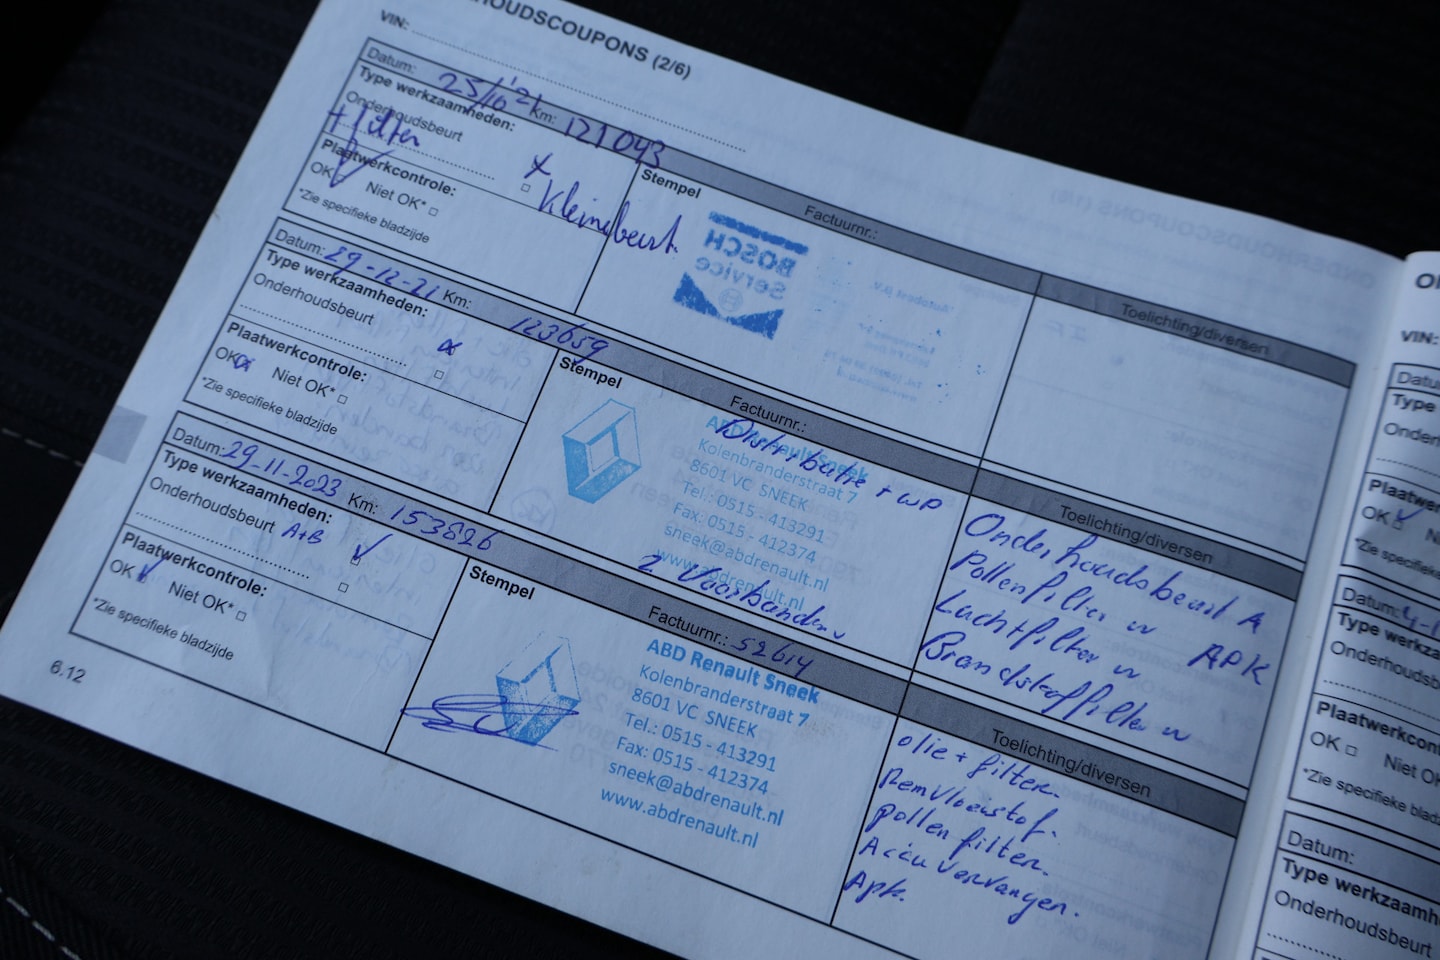 HOUDSCOUPONS (2/6)
VIN:
Datum: 25/10 '21 Km: 121043
Type werkzaamheden:
Onderhoudsbeurt
+ filter
Kleinebeurt.
Plaatwerkcontrole:
OK Niet OK*
*Zie specifieke bladzijde
Stempel
Factuurnr.:
BOSCH
Service
Toelichting/diversen
Datum: 29-12-21 Km: 123659
Type werkzaamheden:
Onderhoudsbeurt
Plaatwerkcontrole:
OK Niet OK*
*Zie specifieke bladzijde
Stempel
Factuurnr.:
Distributie + WP
ABD Renault Sneek
Kolenbranderstraat 7
8601 VC SNEEK
Tel.: 0515 - 413291
Fax: 0515 - 412374
sneek@abdrenault.nl
www.abdrenault.nl
2 Voorbanden
Toelichting/diversen
Onderhoudsbeurt A
Pollenfilter
Luchtfilter APK
Brandstoffilter
Datum: 29-11-2023 Km: 153826
Type werkzaamheden:
Onderhoudsbeurt A+B
Plaatwerkcontrole:
OK Niet OK*
*Zie specifieke bladzijde
Stempel
Factuurnr.: 52614
ABD Renault Sneek
Kolenbranderstraat 7
8601 VC SNEEK
Tel.: 0515 - 413291
Fax: 0515 - 412374
sneek@abdrenault.nl
www.abdrenault.nl
Toelichting/diversen
olie + filter.
Remvloeistof.
pollen filter.
Accu vervangen.
Apk.
6.12
VIN:
Type
Plaatwer
OK
*Zie specifieke
Datum:
Type werkza
Onderhoudsbe
Plaatwerkcont
OK Niet O
*Zie specifieke blad
Datum:
Type werkzaamh
Onderhoudsbeurt